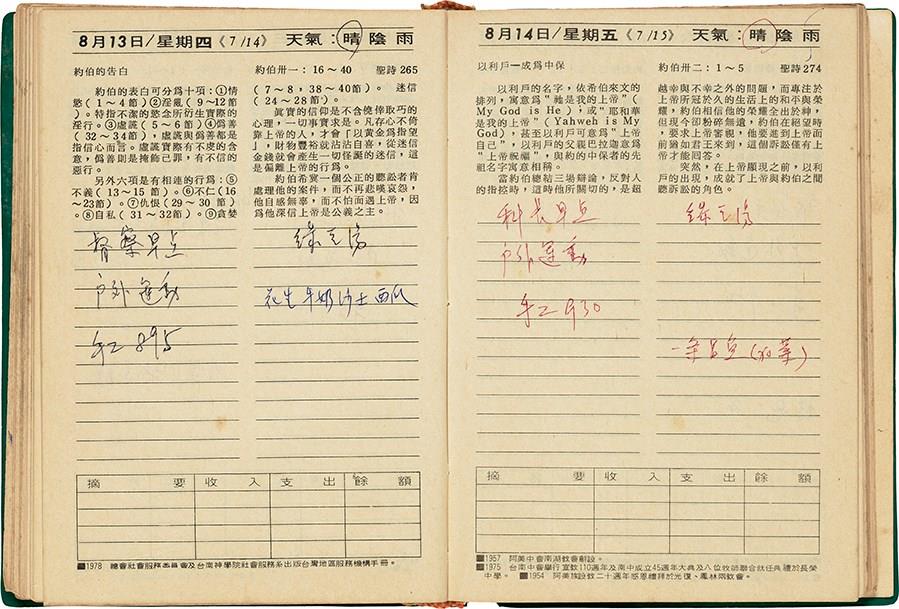 8月13日/星期四《7/14》 天氣:晴陰雨
約伯的告白
約伯的表白可分為十項:①情
慾(1~4節)②淫亂(9~12節
)。特指不潔的慾念所衍生實際的
淫行。③虛謊(5~6節)④偽善
(32~34節),虛謊與偽善都是
指信心而言。虛謊實際有不虔的含
意,偽善則是掩飾己罪,有不信的
惡行。
另外六項是有相連的行為:⑤
不義(13~15節)。⑥不仁(16
~23節)。⑦仇恨(29~30節)
。⑧自私(31~32節)。⑨貪婪
約伯卅一:16~40 聖詩265
(7~8,38~40節)。 迷信
(24~28節)。
真實的信仰是不含僥倖取巧的
心理,一切事實求是。凡存心不倚
靠上帝的人,才會「以黃金為指望
」,財物豐裕就沾沾自喜,從迷信
金錢就會產生一切怪誕的迷信,這
是偏離上帝的行為。
約伯希冀一個公正的聽訟者肯
處理他的案件,而不再悲嘆哀怨,
他自感無辜,而不怕面遇上帝,因
為他深信上帝是公義之主。
督察早点
戶外運動
紅895
綠豆湯
花生牛奶沙士西瓜
摘要 收入 支出 餘額
■1978 總會社會服務委員會及台南神學院社會服務系出版台灣地區服務機構手冊。
8月14日/星期五《7/15》 天氣:晴陰雨
以利戶—成為中保
以利戶的名字,依希伯來文的
排列,寓意為“祂是我的上帝”(
My God is He);或“耶和華
是我的上帝”(Yahweh is My
God),甚至以利戶可意為“上帝
自己”,以利戶的父親巴拉迦意為
“上帝祝福”,與約的中保者的先
祖名字寓意相稱。
當約伯總結三場辯論,反對人
的指控時,這時他所關切的,是超
約伯卅二:1~5 聖詩274
越幸與不幸之外的問題,而專注於
上帝所冠於久的生活上的和平與榮
耀,約伯相信他的榮耀全出於神,
但現今卻粉碎無遺,約伯在絕望時
,要求上帝審視,他要進到上帝面
前猶如君王來到,這個訴訟僅有上
帝才能回答。
突然,在上帝顯現之前,以利
戶的出現,成就了上帝與約伯之間
聽訴訟的角色。
科長早点
戶外運動
紅930
綠豆湯
摘要 收入 支出 餘額
■1957 阿美中會南湖教會創設。
■1975 台南中會舉行宣教110週年及南中成立45週年大典及八位牧師聯合就任典禮於長榮
中學。 ■1954 阿美族設教二十週年感恩禮拜於光復、鳳林兩教會。